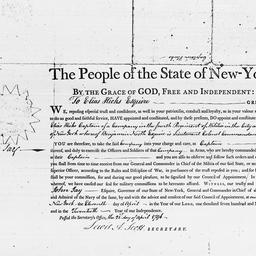 The People of the State of New-Yo
By the Grace of GOD, Free and Independent:
To Elias Hicks Esquire GREE
WE, reposing especial trust and confidence, as well in your patriotism, conduct and loyalty, as in your valour
as to good and faithful service, HAVE appointed and constituted, and by these presents, DO appoint and constitute
Elias Hicks Captain of a Company in the fourth Regiment of Militia in the City a
of New York whereof Benjamin North Esquire is Lieutenant Colonel Commandant
YOU are therefore, to take the said Company into your charge and care, as Captain
thereof, and duly to exercise the Officers and Soldiers of that Company in Arms, who are hereby commanded
as their Captain and you are also to observe and follow such orders and
you shall from time to time receive from our General and Commander in Chief of the Militia of our said State, or
Superior Officer, according to the Rules and Discipline of War, in pursuance of the trust reposed in you; and for
shall be your commission, for and during our good pleasure, to be signified by our Council of Appointment. In
whereof, we have caused our seal for military commissions to be hereunto affixed. WITNESS, our trusty and
John Jay Esquire, Governor of our State of New-York, General and Commander in Chief of all
and Admiral of the Navy of the same, by and with the advice and consent of our said Council of Appointment, at our
New York the Eleventh day of April in the Year of our Lord, one thousand seven hundred and
in the Twentieth Year of our Independence.
Passed the Secretary's Office, the 21 day of April 1796.
Lewis A. Scott SECRETARY.
Jay